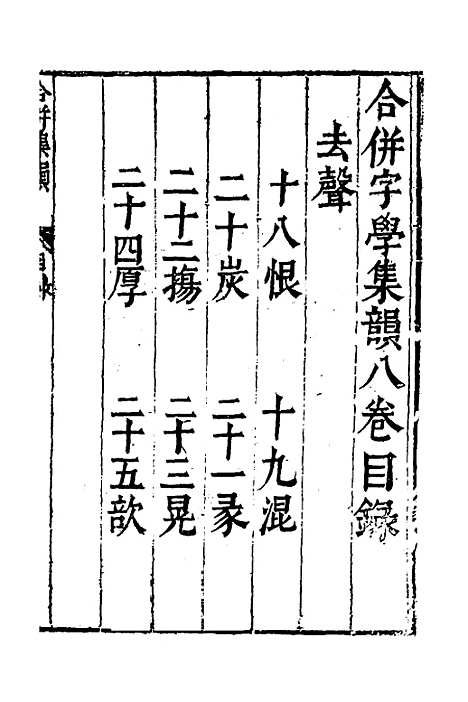 合併字學集韻八卷目錄
去聲
十八恨 十九混
二十炭 二十一彖
二十二摥 二十三晃
二十四厚 二十五歆
合併集韻 目錄